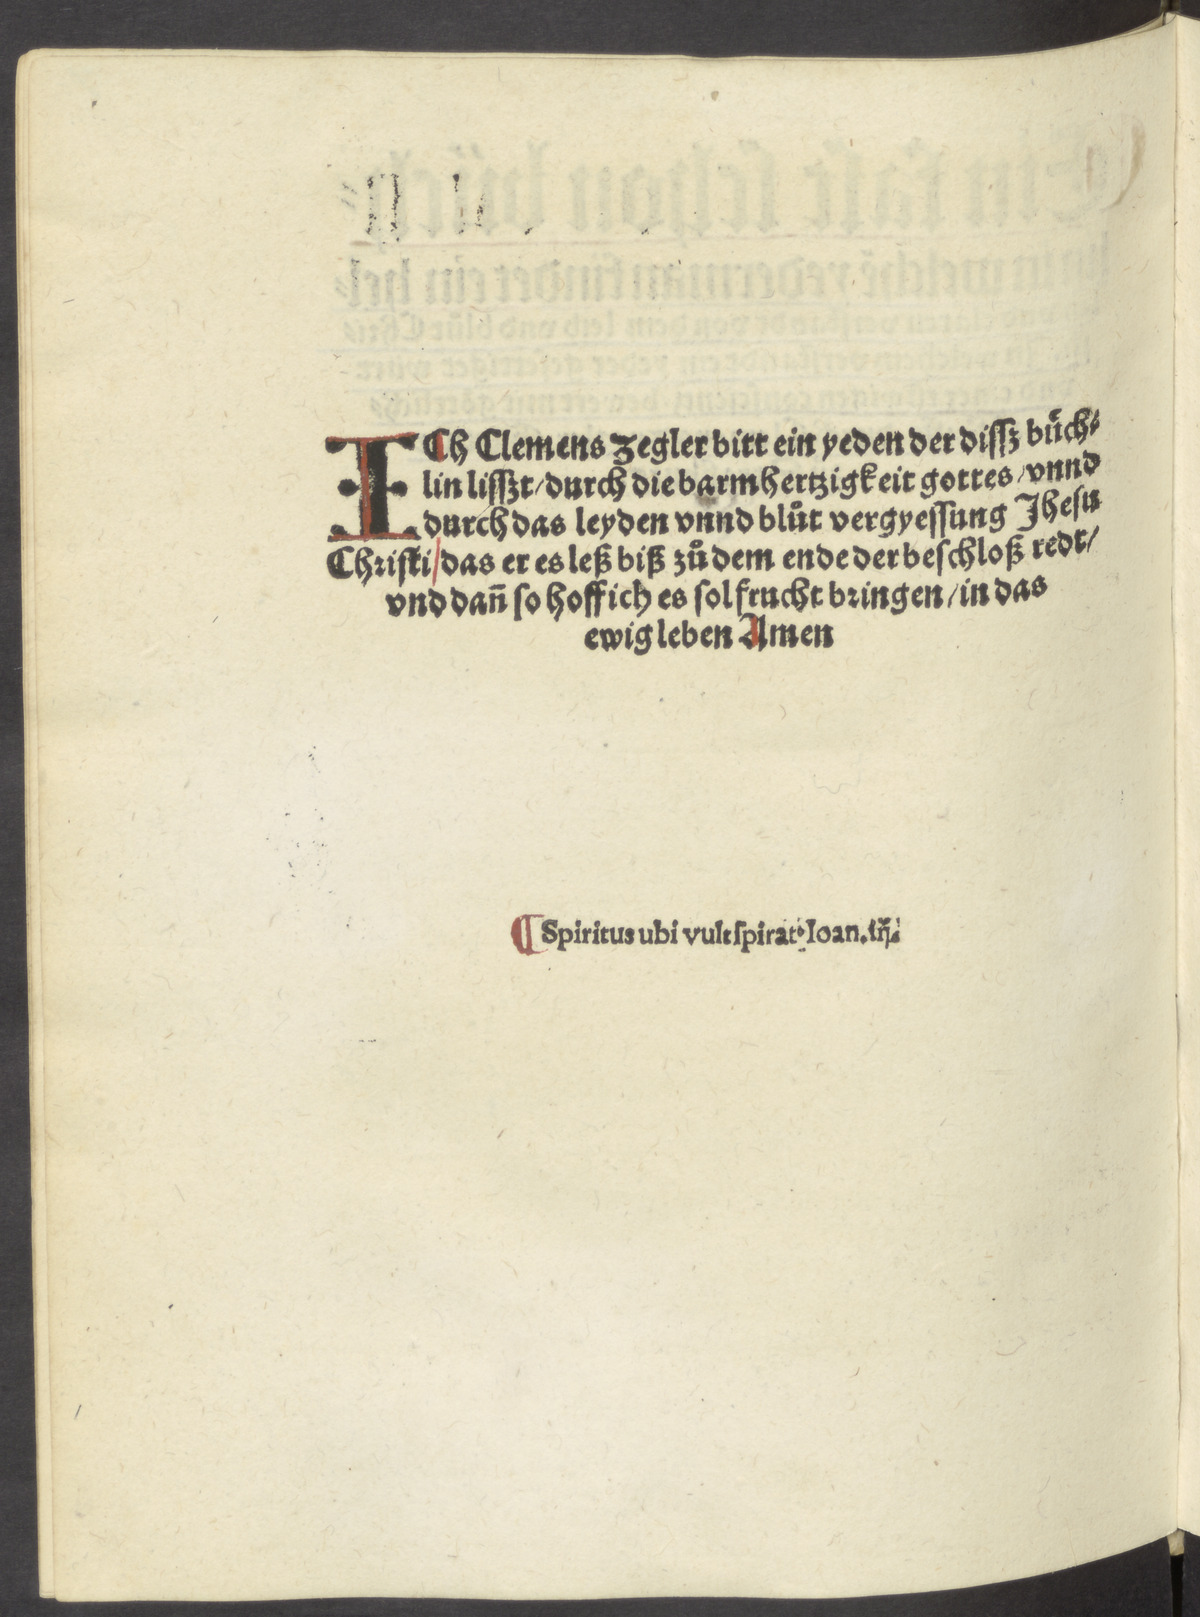 ICh Clemens Zegler bitt ein yeden der disſz bůch⸗
lin lisſzt/ durch die barmhertzigkeit gottes/ vnnd
durch das leyden vnnd blůt vergyesſung Jhesu
Chriſti/ das er es leß biß zů dem ende der beſchloß redt/
vnd dañ ſo hoff ich es ſol frucht bringen/ in das
ewig leben Amen
¶ Spiritus ubi vult ſpirat. Ioan. iij.